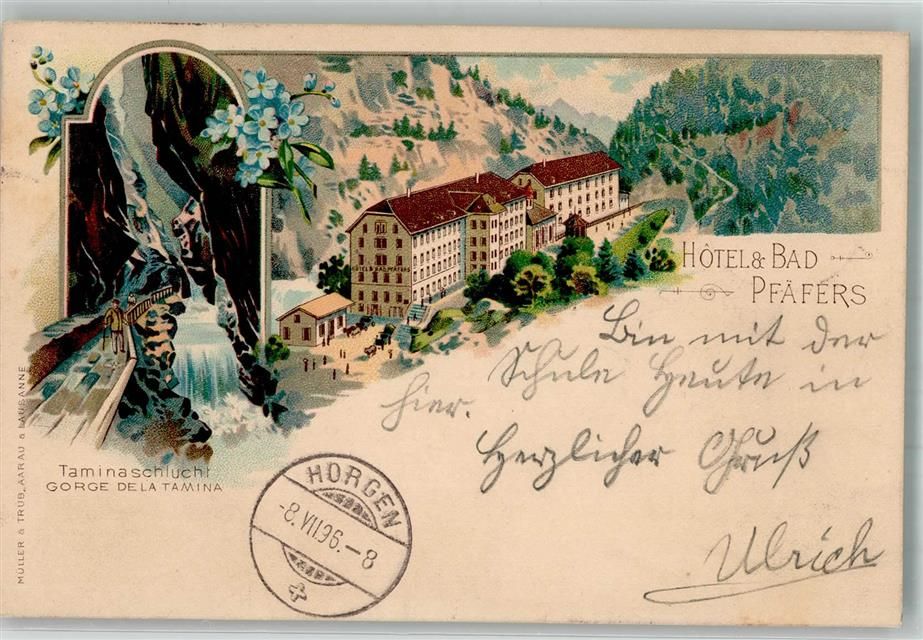 HÔTEL & BAD PFÄFERS
HÔTEL & BAD
PFÄFERS
Bin mit der
Schule Heute in
hier.
Herzlicher Gruß
Ulrich
Taminaschlucht
GORGE DE LA TAMINA
HORGEN
-8.VII.96.-8
MÜLLER & TRÜB, AARAU & LAUSANNE